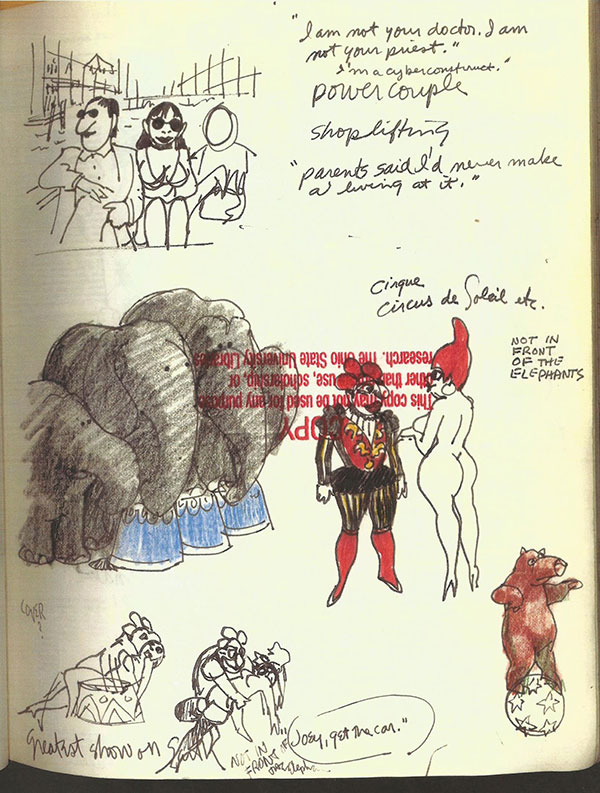 "I am not your doctor. I am
not your priest."
"I'm a cyberconstruct."
power couple
shoplifting
"parents said I'd never make
a living at it."
Cirque
Circus de Soleil etc.
NOT IN
FRONT
OF THE
ELEPHANTS
COPY
This copy may not be used for any purpose
other than use, scholarship, or
research. The Ohio State University Libraries
COVER
?
Greatest show on Earth
NOT IN
FRONT OF
THE
"Joey, get the car."